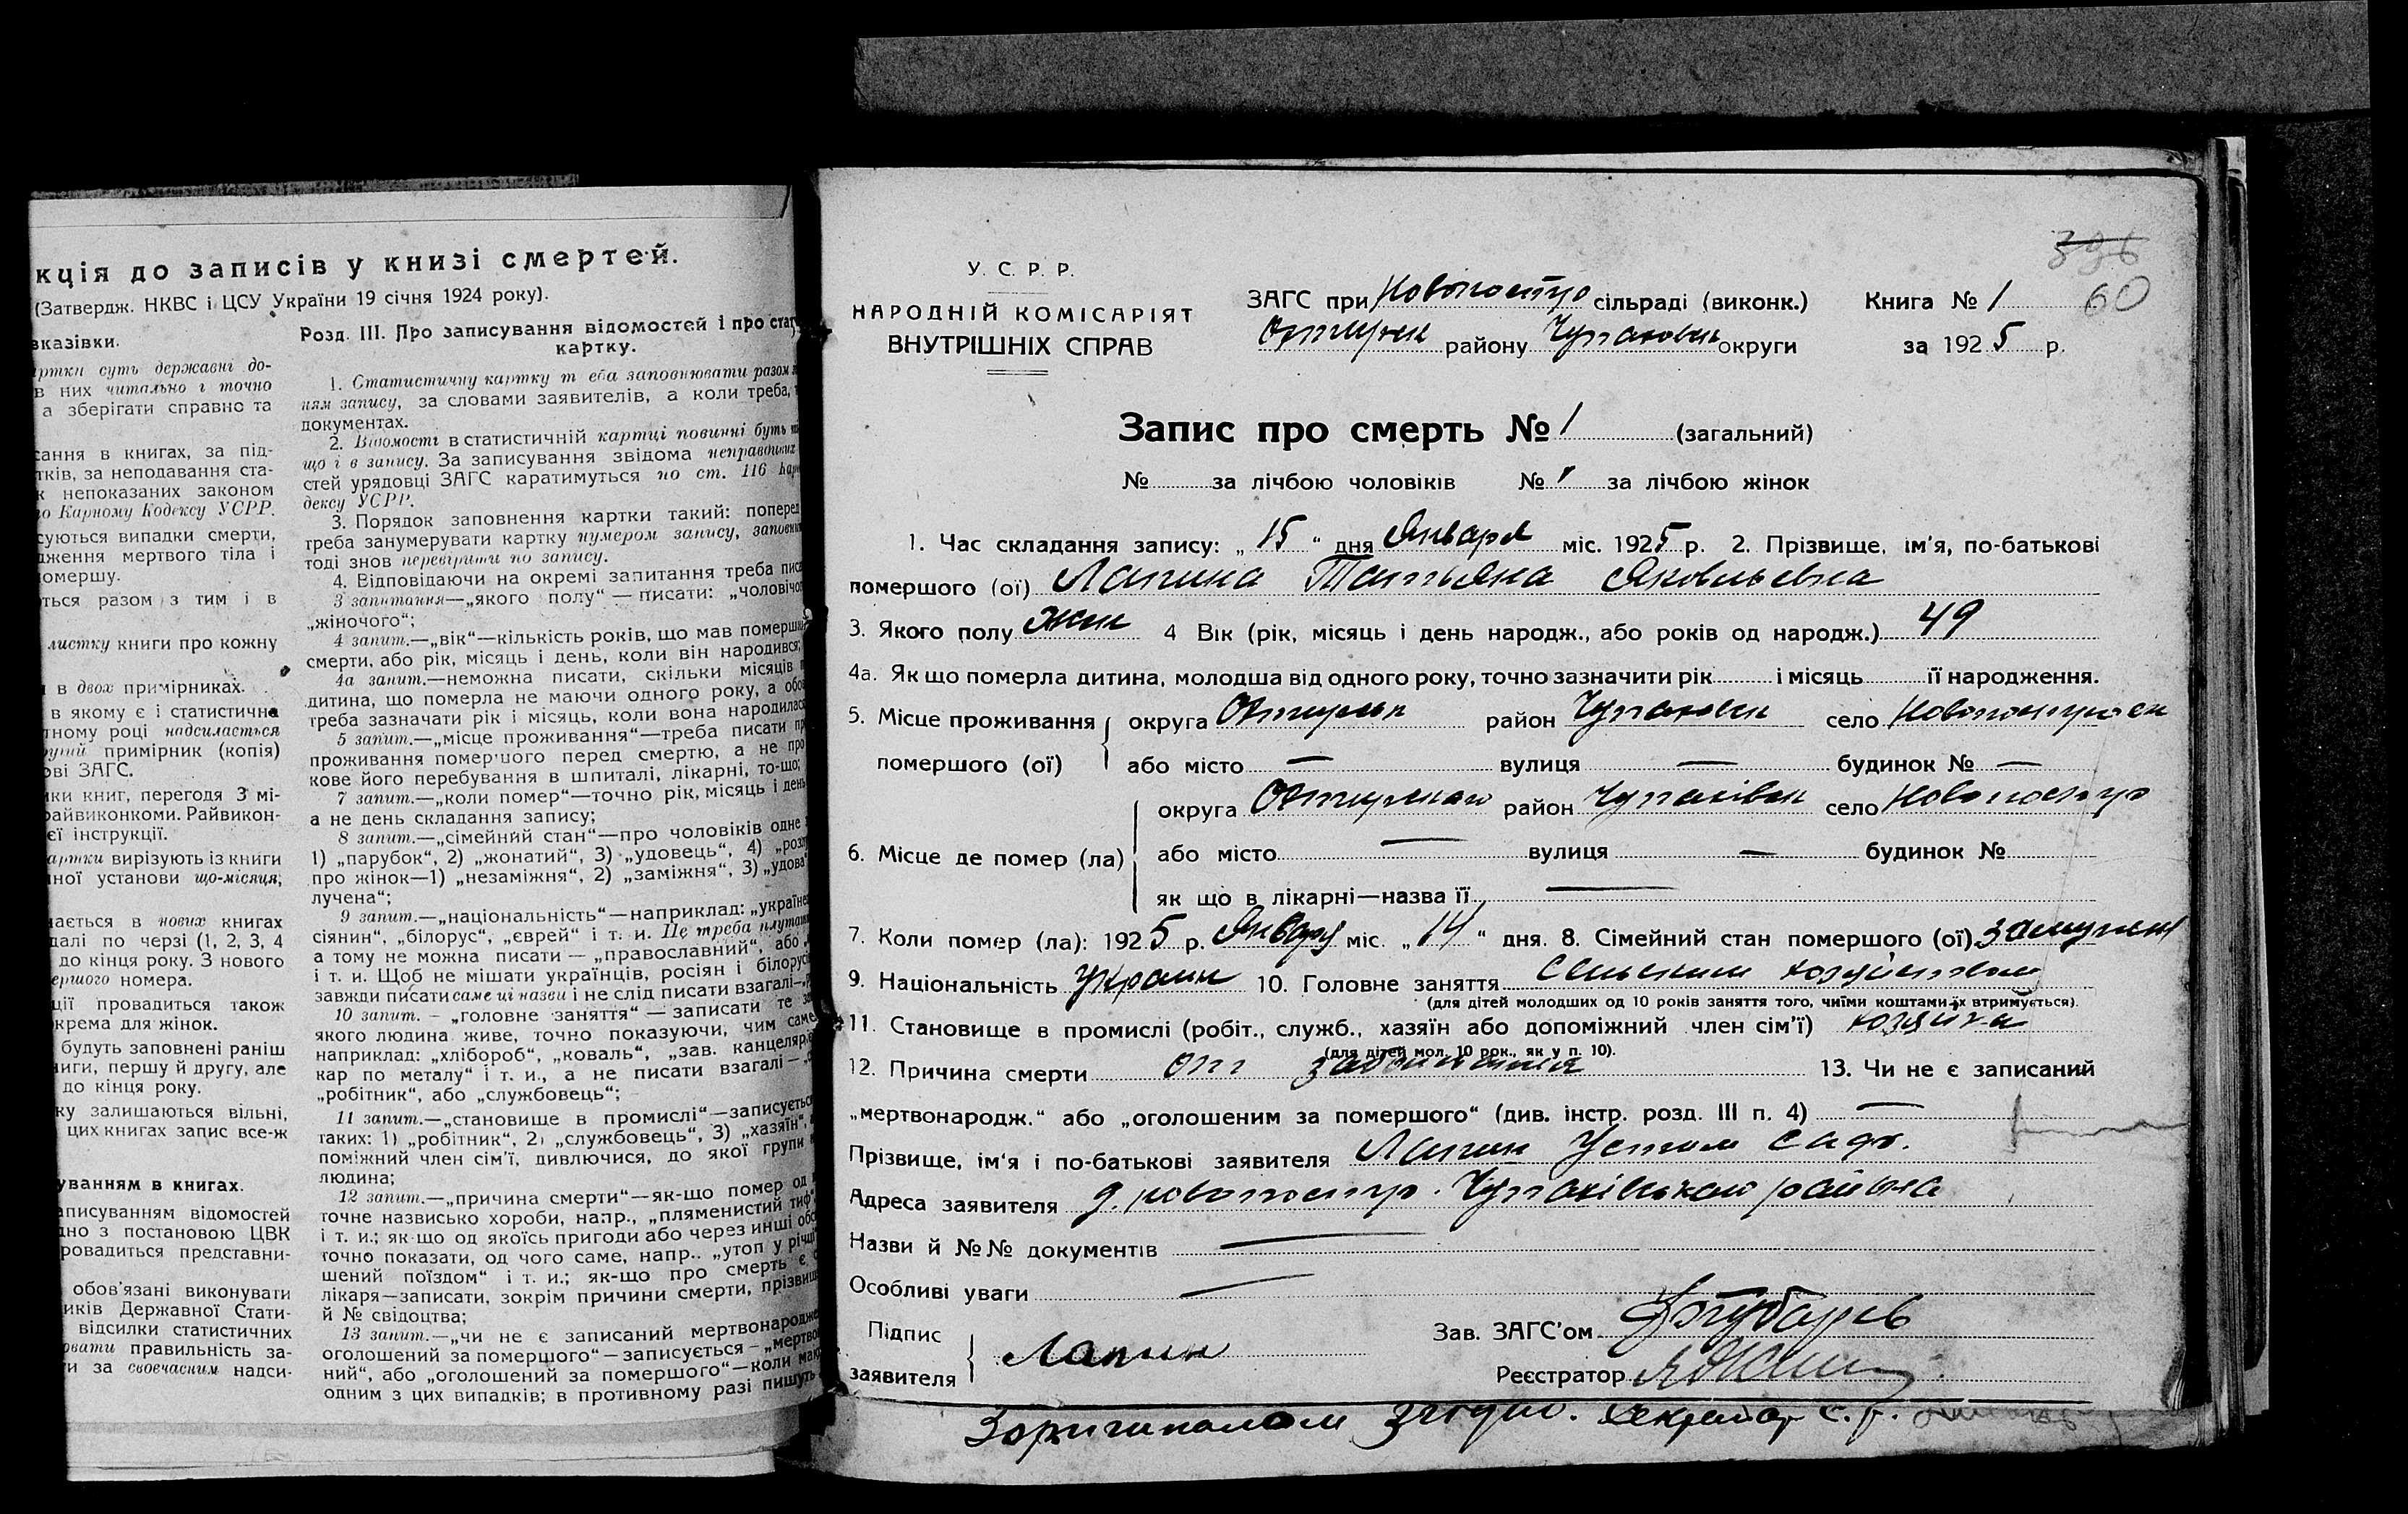 кція до записів у книзі смертей.
(Затвердж. НКВС і ЦСУ України 19 січня 1924 року).
вказівки.
артки суть державні до-
в них читально і точно
а зберігати справно та
сання в книгах, за під-
тків, за неподавання ста-
к непоказаних законом
по Карному Кодексу УСРР.
суються випадки смерти,
дження мертвого тіла і
омершу.
ться разом з тим і в
листку книги про кожну
в двох примірниках.
в якому є і статистична
тному році надсилається
ругий примірник (копія)
ові ЗАГС.
ки книг, перегодя 3 мі-
айвиконкоми. Райвикон-
єї інструкції.
артки вирізують із книги
ної установи що-місяця,
ається в нових книгах
далі по черзі (1, 2, 3, 4
до кінця року. З нового
ершого номера.
ції провадиться також
крема для жінок.
будуть заповнені раніш
иги, першу й другу, але
до кінця року.
ку залишаються вільні,
цих книгах запис все-ж
уванням в книгах.
аписуванням відомостей
дно з постановою ЦВК
ровадиться представни-
обов'язані виконувати
иків Державної Стати-
відсилки статистичних
овати правильність за-
ти за своєчасним надси-
Розд. III. Про записування відомостей і про стат
картку.
1. Статистичну картку т еба заповнювати разом
ням запису, за словами заявителів, а коли треба,
документах.
2. Відомості в статистичній картці повинні буть
що і в запису. За записування звідома неправдивих
стей урядовці ЗАГС каратимуться по ст. 116 Кар
дексу УСРР.
3. Порядок заповнення картки такий: поперед
треба занумерувати картку нумером запису, заповни
тоді знов перевірити по запису.
4. Відповідаючи на окремі запитання треба писа
3 запитання—„якого полу“ — писати: „чоловічо
„жіночого“;
4 запит.—„вік“—кількість років, що мав померши
смерти, або рік, місяць і день, коли він народився;
4а запит.—неможна писати, скільки місяців
дитина, що померла не маючи одного року, а обо
треба зазначати рік і місяць, коли вона народилас
5 запит.—„місце проживання“—треба писати
проживання помершого перед смертю, а не про
кове його перебування в шпиталі, лікарні, то-що;
7 запит.—„коли помер“—точно рік, місяць і день
а не день складання запису;
8 запит.—„сімейний стан“—про чоловіків одне
1) „парубок“, 2) „жонатий“, 3) „удовець“, 4) „роз
про жінок—1) „незаміжня“, 2) „заміжня“, 3) „удова“
лучена“;
9 запит.—„національність“—наприклад: „українe
сіянин“, „білорус“, „єврей“ і т. и. Це треба плутати
а тому не можна писати — „православний“, або
і т. и. Щоб не мішати українців, росіян і білорусі
завжди писати саме ці назви і не слід писати взагалі—„
10 запит. — „головне заняття“ — записати те
якого людина живе, точно показуючи, чим саме
наприклад: „хлібороб“, „коваль“, „зав. канцеляр
кар по металу“ і т. и., а не писати взагалі —
„робітник“, або „службовець“;
11 запит.—„становище в промислі“—записуєтьс
таких: 1) „робітник“, 2) „службовець“, 3) „хазяїн“,
поміжний член сім'ї, дивлючися, до якої групи
людина;
12 запит.—„причина смерти“—як-що помер од
точне назвисько хороби, напр., „пляменистий тиф“
і т. и.; як-що од якоїсь пригоди або через инші об
точно показати, од чого саме, напр.. „утоп у річці
шений поїздом“ і т. и.; як-що про смерть є
лікаря—записати, зокрім причини смерти, прізвищ
й № свідоцтва;
13 запит.—„чи не є записаний мертвонародже
оголошений за померщого“—записується—„мертво
ний“, або „оголошений за помершого“—коли ма
одним з цих випадків; в противному разі пишуть
396
60
У. С. Р. Р.
НАРОДНІЙ КОМІСАРІЯТ
ВНУТРІШНІХ СПРАВ
ЗАГС при сільраді (виконк.) Книга № 1
району округи за 1925 р.
Запис про смерть № 1 (загальний)
№ за лічбою чоловіків № 1 за лічбою жінок
1. Час складання запису: „15“ дня Января міс. 1925 р. 2. Прізвище, ім'я, по-батькові
помершого (ої) Лапина Татьяна Яковльевна
3. Якого полу жен 4 Вік (рік, місяць і день народж., або років од народж.) 49
4а. Як що померла дитина, молодша від одного року, точно зазначити рік і місяць її народження.
5. Місце проживання округа район село
помершого (ої) або місто — вулиця — будинок № —
округа район село
6. Місце де помер (ла) або місто — вулиця — будинок №
як що в лікарні—назва її —
7. Коли помер (ла): 1925 р. Января міс. „14“ дня. 8. Сімейний стан помершого (ої)
9. Національність Украин 10. Головне заняття Сельским хозяйством
(для дітей молодших од 10 років заняття того, чиїми коштами їх втримується).
11. Становище в промислі (робіт., служб., хазяїн або допоміжний член сім'ї) хозяйка
(для дітей мол. 10 рок., як у п. 10).
12. Причина смерти от 13. Чи не є записаний
„мертвонародж.“ або „оголошеним за помершого“ (див. інстр. розд. III п. 4) —
Прізвище, ім'я і по-батькові заявителя Лапин Устим
Адреса заявителя района
Назви й №№ документів —
Особливі уваги —
Підпис
заявителя
Лапин
Зав. ЗАГС'ом
Реєстратор
Зоригиналом згідно. Секретар с. р.